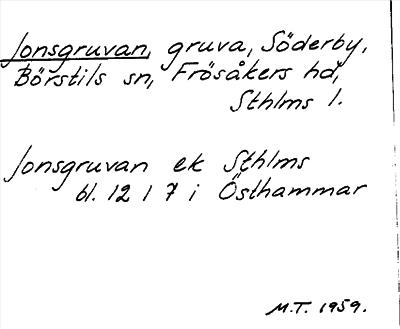 Jonsgruvan, gruva, Söderby,
Börstils sn, Frösåkers hd,
Sthlms l.
Jonsgruvan ek Sthlms
bl. 12 1 7 i Östhammar
M.T. 1959.